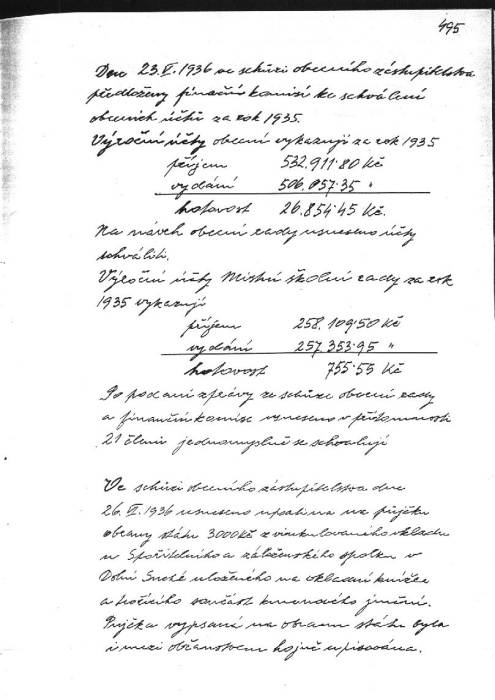 495
Dne 23.VI.1936 ve schůzi obecního zastupitelstva
předloženy finanční komisí ke schválení
obecních účtů za rok 1935.
Výroční účty obecní vykazují za rok 1935
příjem 532.911·80 Kč
vydání 506.057·35 "
hotovost 26.854·45 Kč.
Na návrh obecní rady usneseno účty
schváliti.
Výroční účty Místní školní rady za rok
1935 vykazují
příjem 258.109·50 Kč
vydání 257.353·95 "
hotovost 755·55 Kč
Po podání zprávy ze schůze obecní rady
a finanční komise usneseno v přítomnosti
21 členů jednomyslně se schvalují
Ve schůzi obecního zastupitelstva dne
26.VI.1936 usneseno upsati na půjčku
obrany státu 3000 Kč z vinkulovaného vkladu
u Spořitelního a záloženského spolku v
Dolní Suché uloženého na vkladní knížce
a tvořícího součást kmenového jmění.
Půjčka vypsaná na obranu státu byla
i mezi občanstvem hojně upisována.